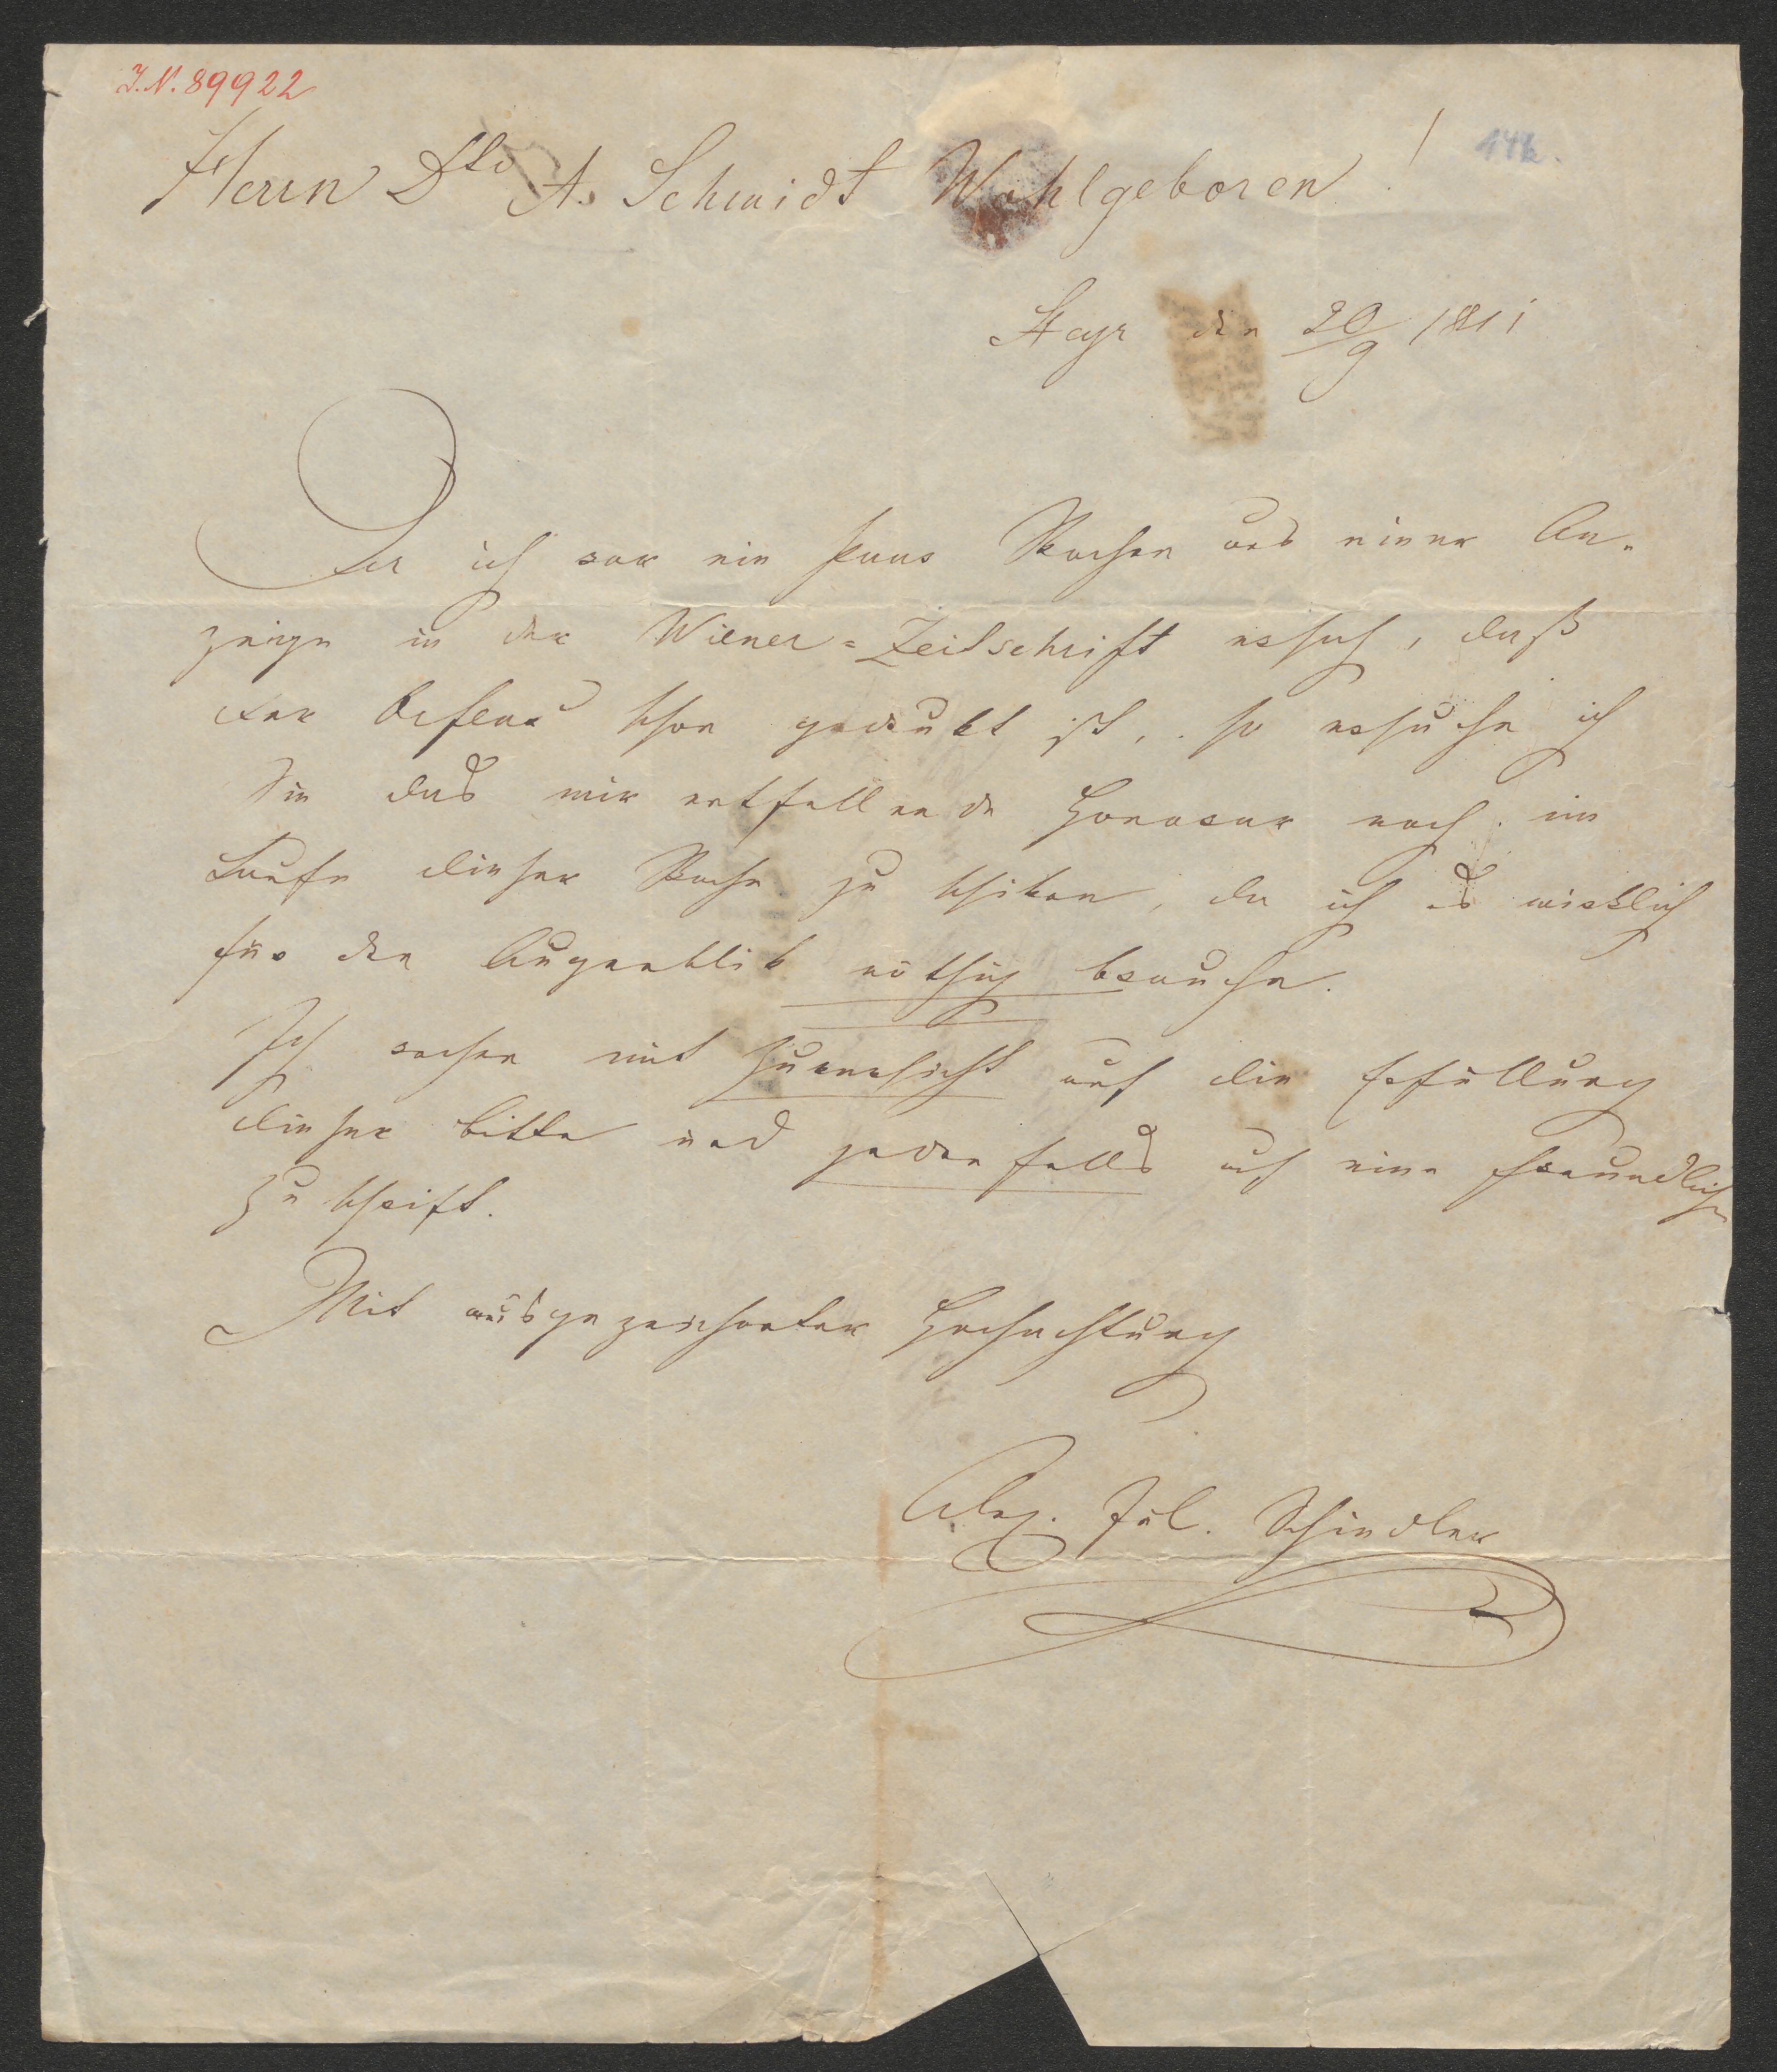 J.N. 89922
144.
Herrn Dtr A. Schmidt Wohlgeboren!
Steyr den 20/9 1841
Da ich vor ein paar Wochen aus einer An-
zeige in der Wiener-Zeitschrift ersah, daß
der Orfeus schon gedrukt ist, so ersuche ich
Sie das mir entfallende Honorar noch im
Laufe dieser Woche zu schiken, da ich es wirklich
für den Augenblik nöthig brauche.
Ich rechne mit Zuversicht auf die Erfüllung
dieser Bitte und jedenfalls auf eine freundliche
Zuschrift.
Mit ausgezeichneter Hochachtung
Alex. Jul. Schindler